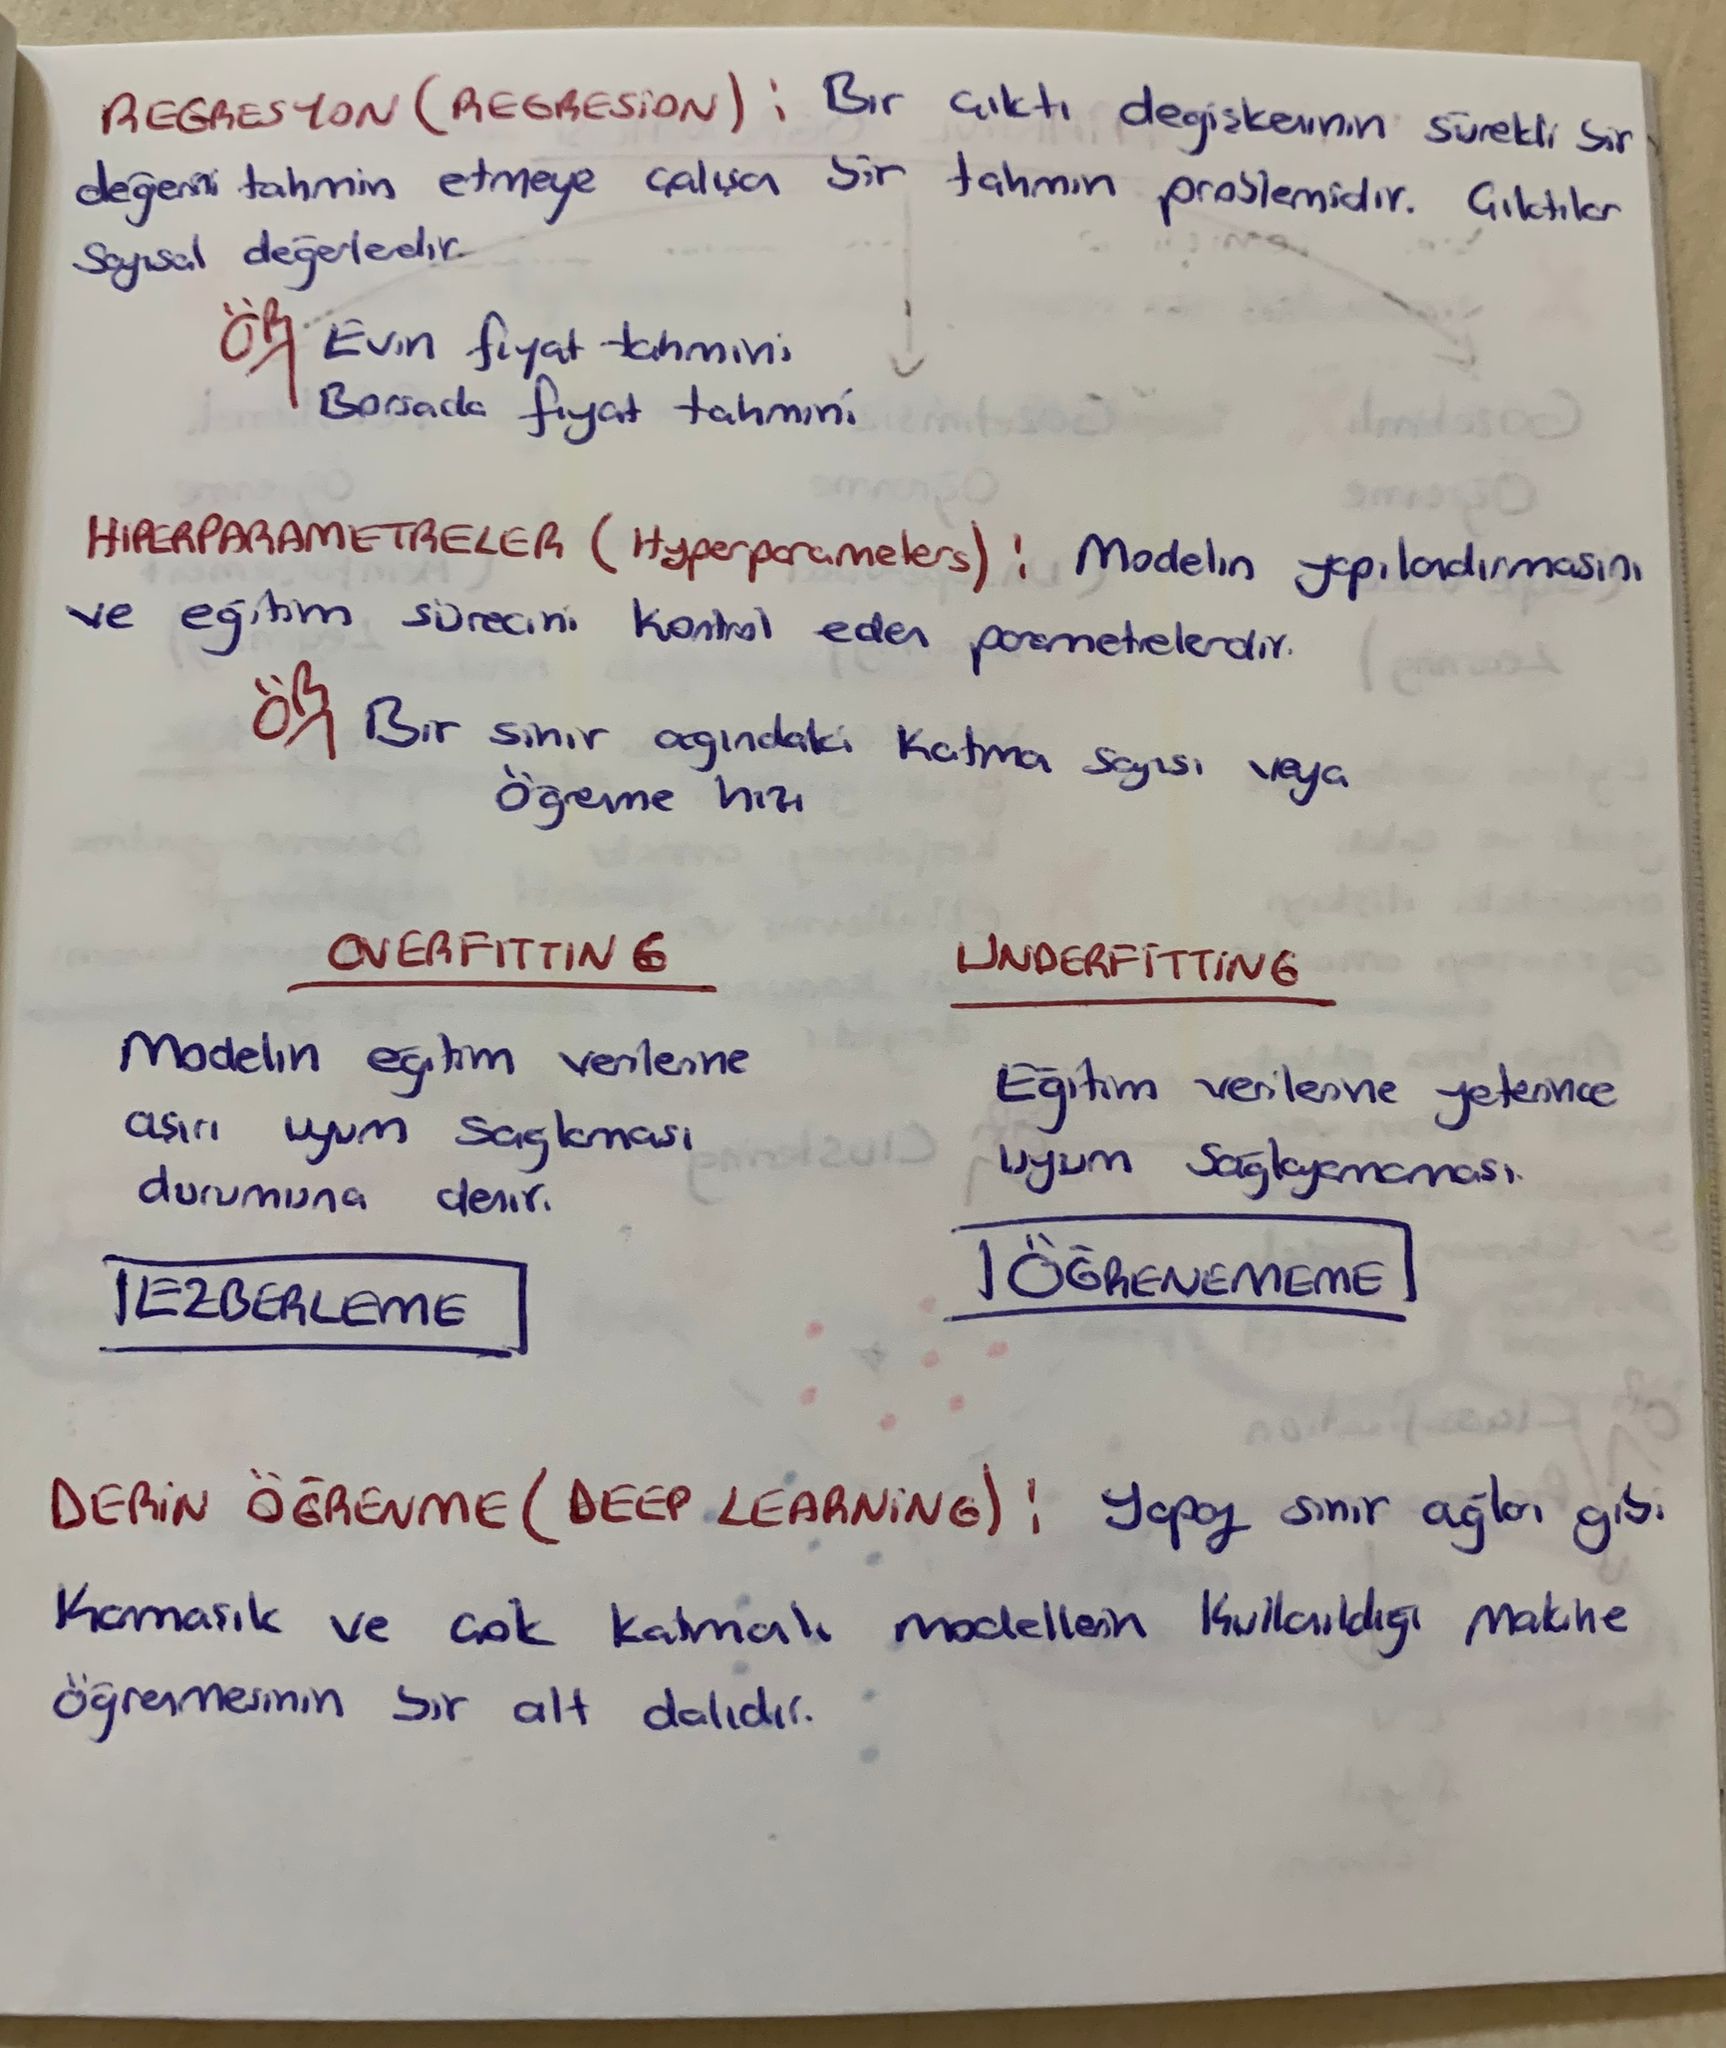 REGRESYON (REGRESİON) : Bir çıktı değişkeninin sürekli bir
değerini tahmin etmeye çalışan bir tahmin problemidir. Çıktılar
sayısal değerlerdir.
ÖR/ Evin fiyat tahmini
Borsada fiyat tahmini
HİPERPARAMETRELER (Hyperparameters) : Modelin yapılandırmasını
ve eğitim sürecini kontrol eden parametrelerdir.
ÖR/ Bir sinir ağındaki katman sayısı veya
Öğrenme hızı
OVERFITTING UNDERFİTTİNG
Modelin eğitim verilerine
aşırı uyum sağlaması
durumuna denir.
EZBERLEME
Eğitim verilerine yeterince
uyum sağlayamaması.
ÖĞRENEMEME
DERİN ÖĞRENME (DEEP LEARNİNG) : Yapay sinir ağları gibi
Karmaşık ve çok katmanlı modellerin kullanıldığı makine
öğrenmesinin bir alt dalıdır.